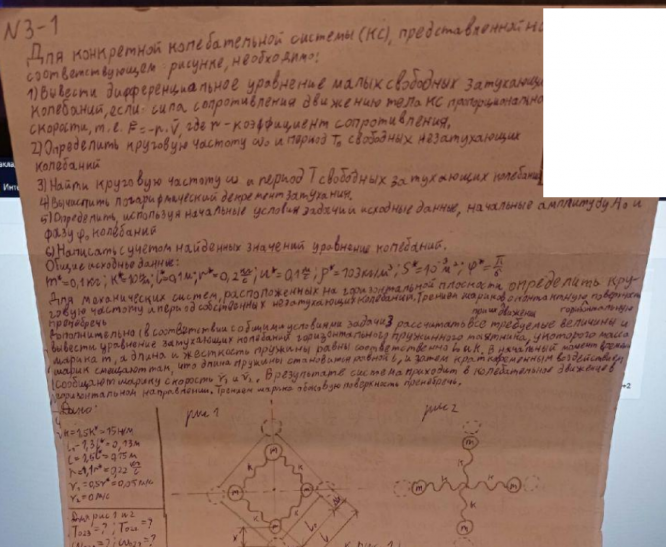 N3-1
Для конкретной колебательной системы (КС), представленной на
соответствующем рисунке, необходимо:
1) Вывести дифференциальное уравнение малых свободных затухающих
колебаний, если сила сопротивления движению тела КС пропорциональна
скорости, т.е. F=-r·v, где r-коэффициент сопротивления.
2) Определить круговую частоту ω₀ и период T₀ свободных незатухающих
колебаний
3) Найти круговую частоту ω и период T свободных затухающих колебаний
4) Вычислить логарифмический декремент затухания.
5) Определить, используя начальные условия задачи и исходные данные, начальные амплитуду A₀ и
фазу φ₀ колебаний
6) Написать с учетом найденных значений уравнение колебаний.
Общие исходные данные:
m*=0,1кг; K*=10н/м; l*=0,1м; r*=0,2 кг/с; u*=0,1 м/с; ρ*=10³кг/м³; S*=10⁻³м²; φ*=π/6
Для механических систем, расположенных на горизонтальной плоскости определить кру-
говую частоту и период собственных незатухающих колебаний. Трением шариков о контактную поверхность
пренебречь
Дополнительно (в соответствии с общими условиями задачи 3 рассчитать все требуемые величины и
вывести уравнение затухающих колебаний горизонтального пружинного маятника, у которого масса
шарика m, а длина и жесткость пружины равны соответственно l₀ и K. В начальный момент времени
шарик смещают так, что длина пружины становится равной l, и затем кратковременным воздействием
сообщают шарику скорость v₁ и v₂. В результате система приходит в колебательное движение в
горизонтальном направлении. Трением шарика об осевую поверхность пренебречь.
Дано:
рис 1
рис 2
K=1,5K*=15н/м
l₀=1,3l*=0,13м
r=1,1r*=0,22 кг/с
m
m
m
m
K
K
K
K
m
m
m
m
K
K
K
K
x